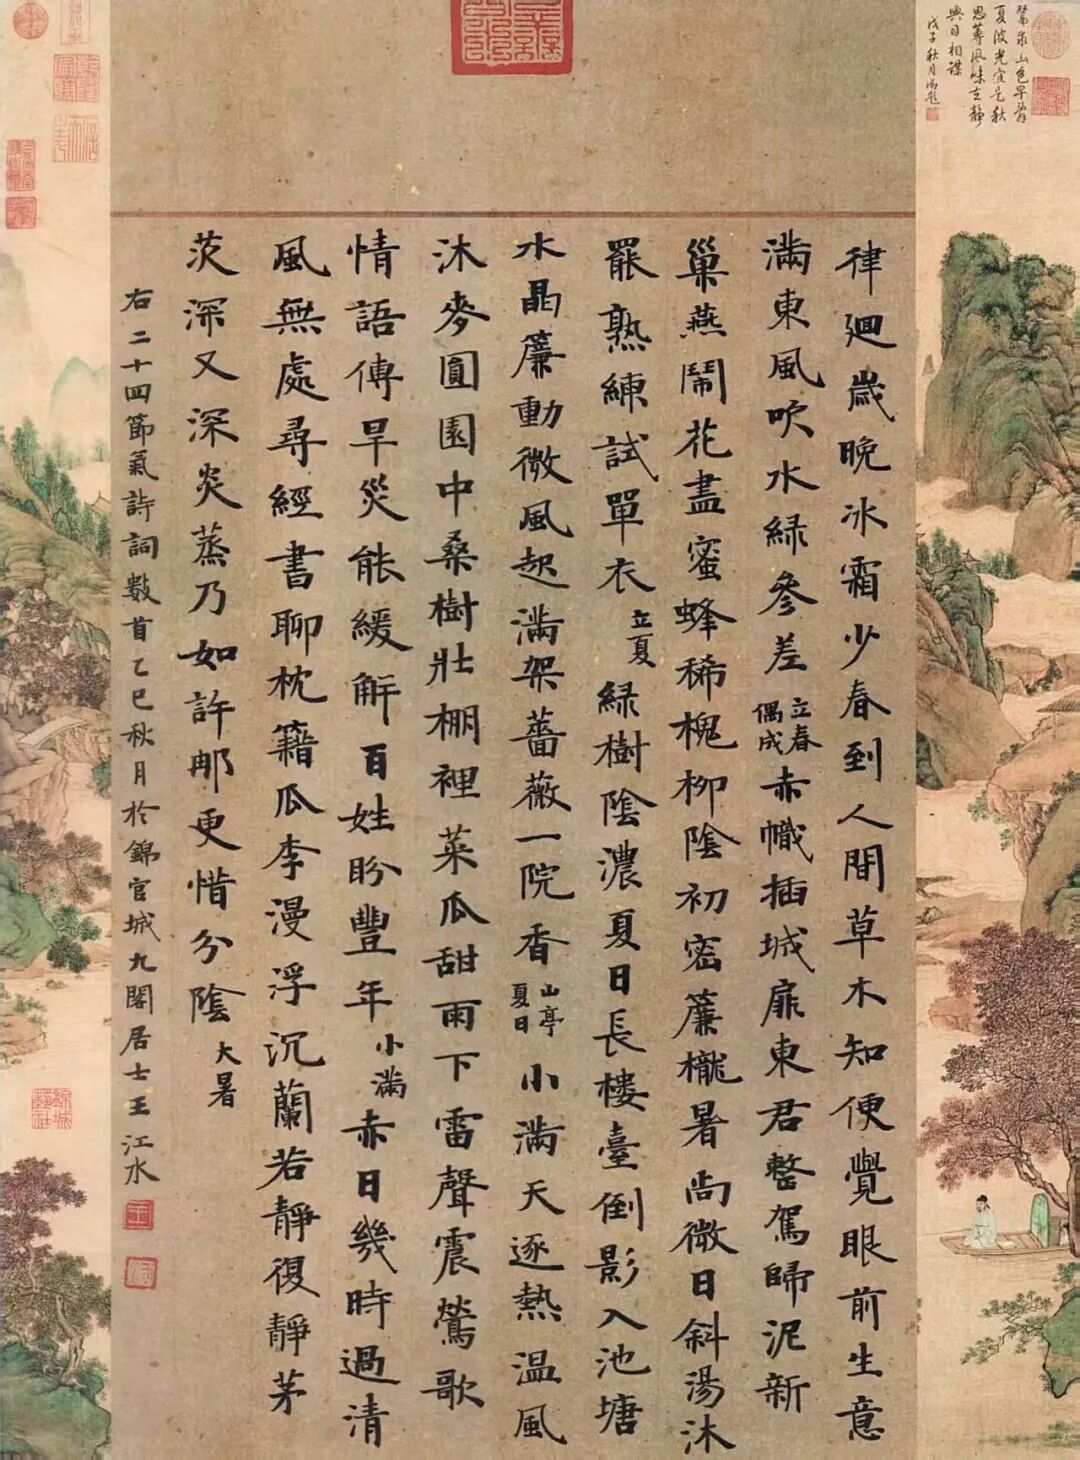 律迴歲晚冰霜少春到人間草木知便覺眼前生意
滿東風吹水綠參差立春偶成赤幟插城扉東君整駕歸泥新
巢燕鬧花盡蜜蜂稀槐柳陰初密簾櫳暑尚微日斜湯沐
罷熟練試單衣立夏綠樹陰濃夏日長樓臺倒影入池塘
水晶簾動微風起滿架薔薇一院香山亭夏日小滿天逐熱温風
沐麥圓園中桑樹壯棚裡菜瓜甜雨下雷聲震鶯歌
情語傳旱災能緩解百姓盼豐年小滿赤日幾時過清
風無處尋經書聊枕籍瓜李漫浮沉蘭若靜復靜茅
茨深又深炎蒸乃如許那更惜分陰大暑
右二十四節氣詩詞數首乙巳秋月於錦官城九閣居士王江水
山色早
夏波光宜是秋
思蓴風味在靜
與目相謀
戊子秋月御題